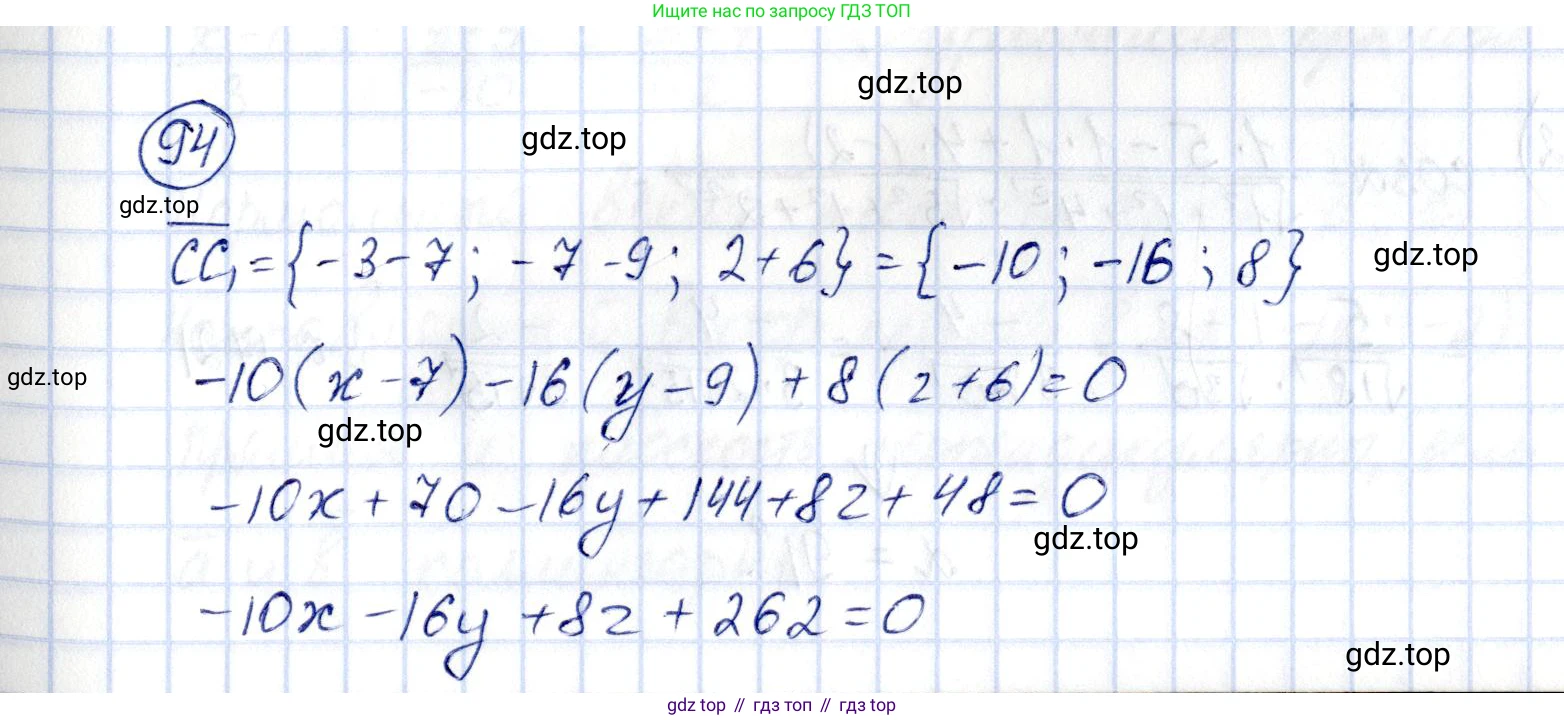 Ищите нас по запросу ГДЗ ТОП
gdz.top
94
gdz.top
gdz.top
CC₁ = {-3-7; -7-9; 2+6} = {-10; -16; 8}
gdz.top
-10(x-7)-16(y-9)+8(z+6)=0
gdz.top
gdz.top
-10x+70-16y+144+8z+48=0
gdz.top
-10x-16y+8z+262=0
gdz.top
gdz.top // гдз топ // гдз top